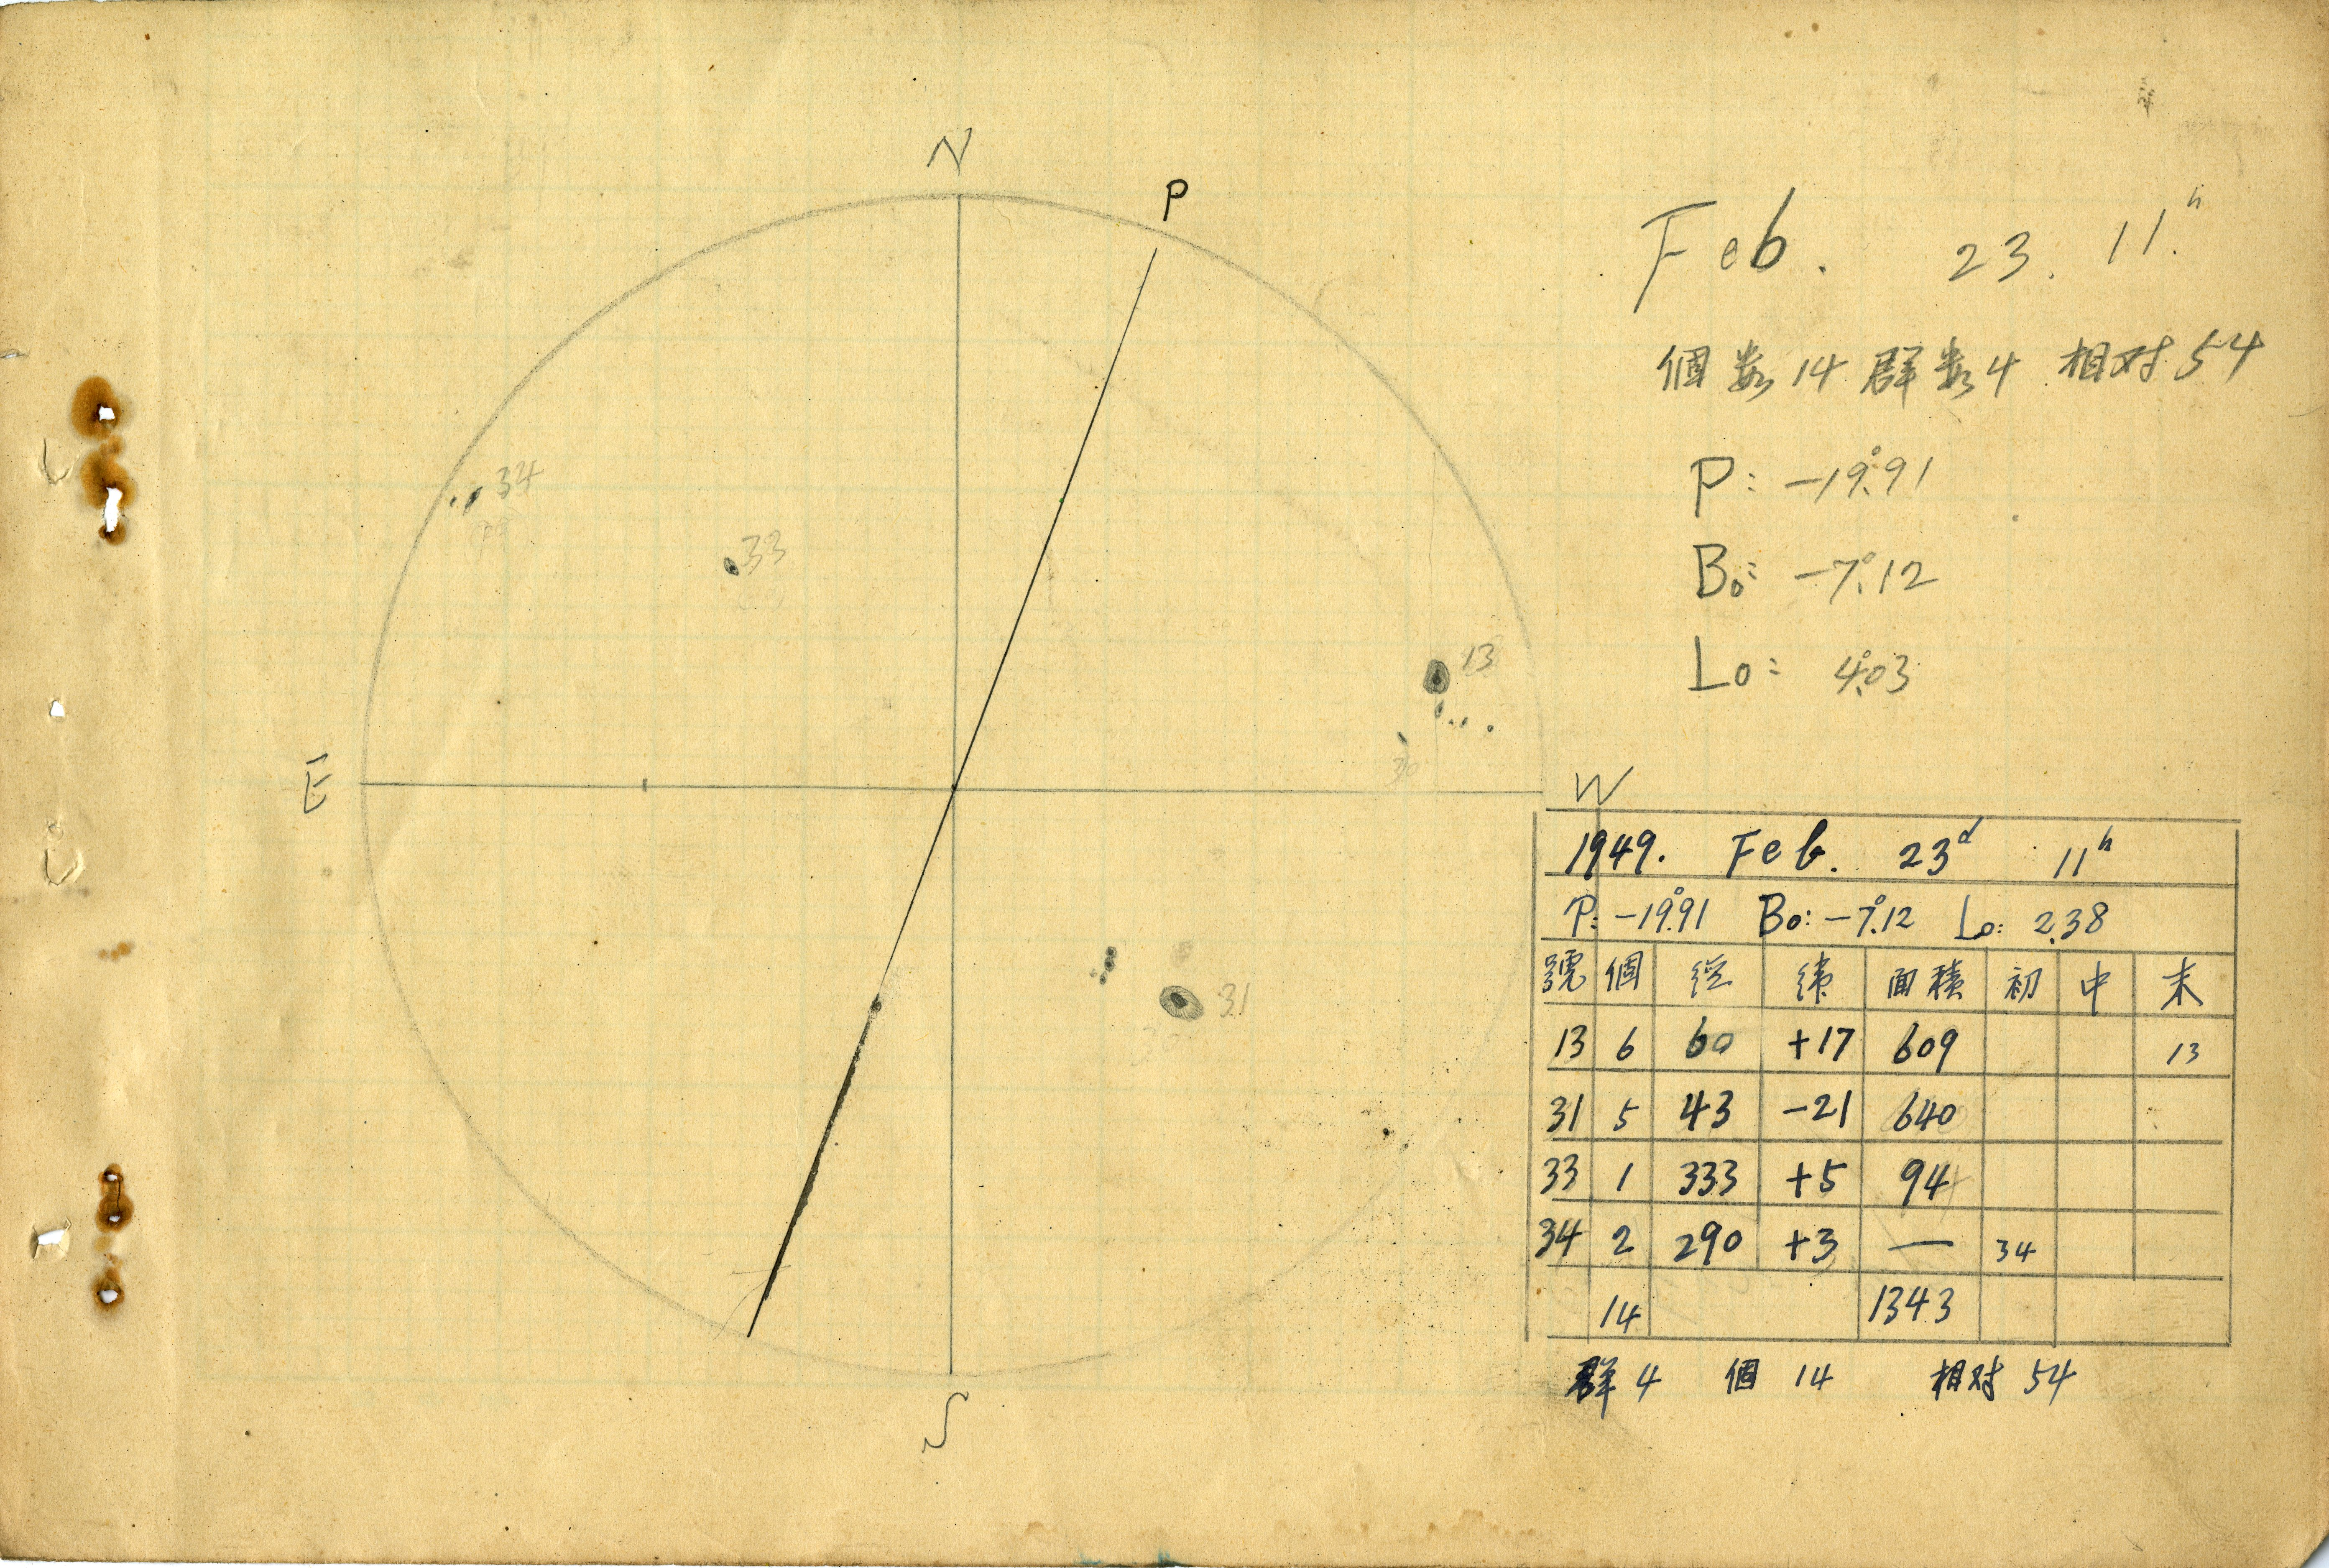 N
P
Feb. 23. 11.h
個数 14 群数 4 相対 54
P: -19°.91
B₀: -7°.12
L₀: 4°.03
34
33
13
E
W
31
S
1949. Feb. 23d 11h
P: -19°.91 B₀: -7°.12 L₀: 2.38
號 個 経 緯 面積 初 中 末
13 6 60 +17 609 13
31 5 43 -21 640
33 1 333 +5 94
34 2 290 +3 — 34
14 1343
群 4 個 14 相対 54